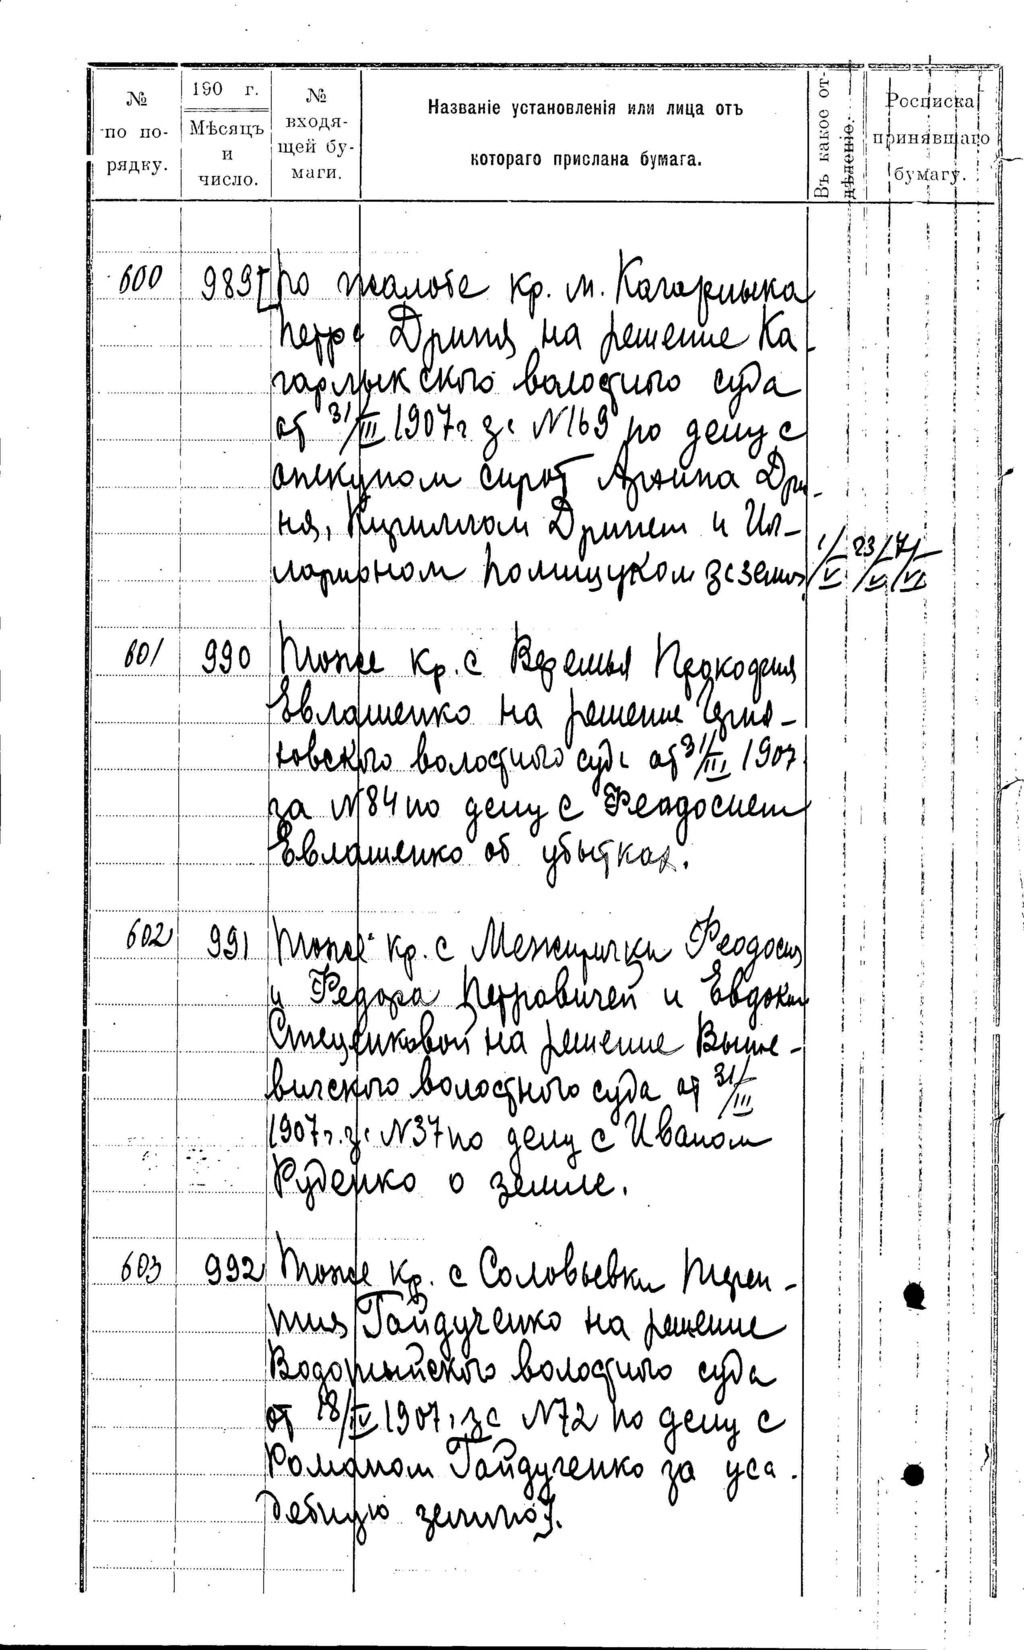 № по по-рядку.
190 г.
Мѣсяцъ и число.
№ входя-щей бу-маги.
Названіе установленія или лица отъ
котораго прислана бумага.
Въ какое от-дѣленіе.
Росписка принявшаго бумагу.
600 989 По жалобе кр. м. Кагарлыка
Петра Дриня на решение Ка-
гарлыкского волостного суда
от 31/III 1907 г за №169 по делу с
опекуном сирот Дри-
ня, Кириллом Дринем и Ил-
ларионом Полищуком за землю
1/V 23/V 7/VI
601 990 Тоже кр. с Веремья Прокофия
Евлашенко на решение
волостного суда от 31/III 1907
за №84 по делу с Феодосием
Евлашенко об убытках.
602 991 Тоже кр. с Межирички Феодосия
и Федора Петровичей и Евдокии
Стеценковой на решение Выше-
вичского волостного суда от 31/III
1907 г. за №37 по делу с Иваном
Руденко о земле.
603 992 Тоже кр. с Соловьевки Терен-
тия Гайдученко на решение
Водотыйского волостного суда
от 18/IV 1907 г за №72 по делу с
Романом Гайдученко за уса-
дебную землю.